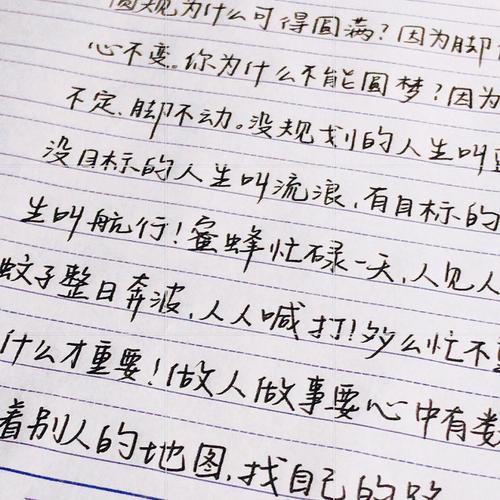 圆规为什么可得圆满?因为脚
心不变。你为什么不能圆梦?因为
不定、脚不动。没规划的人生叫
没目标的人生叫流浪,有目标的
生叫航行!蜜蜂忙碌一天,人见人
蚊子整日奔波,人人喊打!多么忙不
什么才重要!做人做事要心中有数
着别人的地图,找自己的路